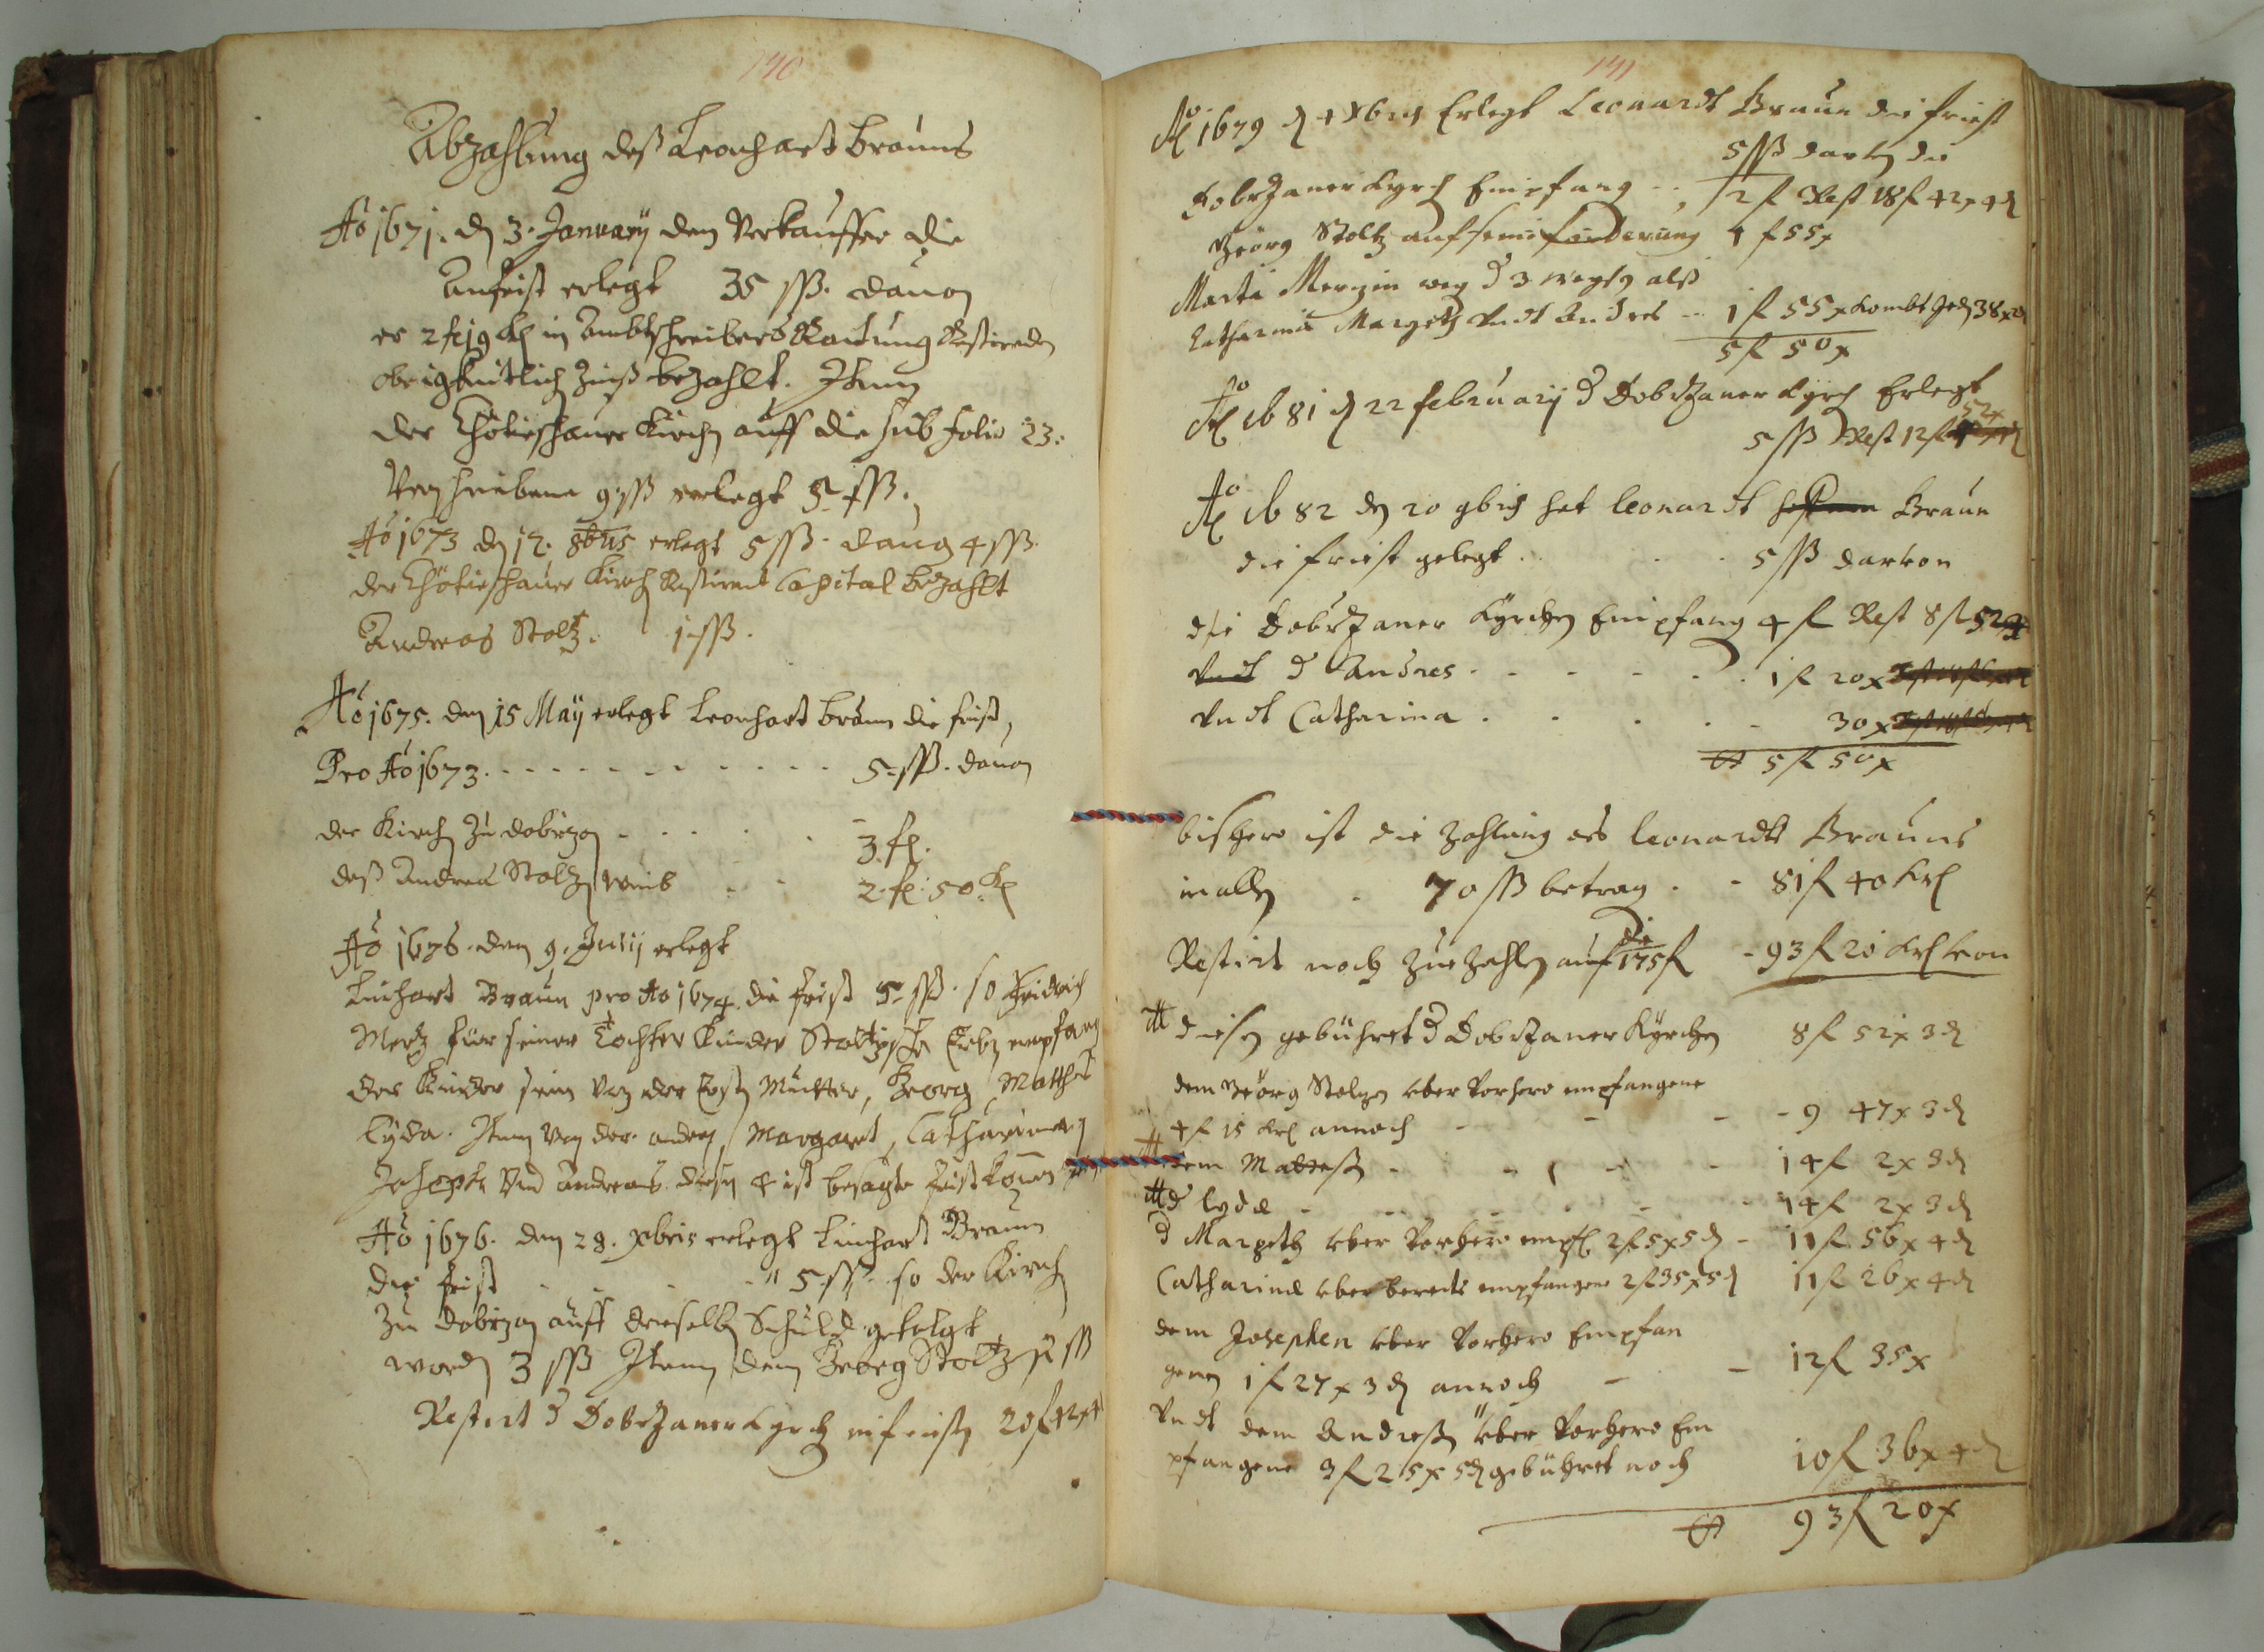 140
Abzahlung deß Leonhart Brauns
Aõ 1671. dn 3. January dem Verkauffer die
Anfrist erlegt 35 ßß. dauon
er 2 fl 19 Kr in Ambtschreibers Raitung Restirenden
obrigkeitlich Zinß bezahlt. Item
der Chotieschauer Kirchen auff die sub folio 23.
Verschriebene 9 ßß erlegt 5 ßß.
Aõ 1673 dn 12. 8bris erlegt 5 ßß. dauon 4 ßß.
der Chotieschauer Kirch Restirent Capital bezahlt
Andreas Stoltz. 1 ßß.
Aõ 1675. den 15 Maÿ erlegt Leonhart Braun die frist,
Pro Aõ 1673. 5 ßß. dauon
der Kirch zu dobrzan 3 fl.
deß Andrea Stoltzen weib 2 fl. 50 Kr
Aõ 1676. den 9. Julij erlegt
Linhart Braun pro Ao 1674. die frist 5 ßß. so Fridrich
Mertz für seiner Tochter Kinder Stoltzische Erben empfang
der Kinder sein von der Ersten Mutter, Georg, Mattheß
Lÿda. Item von der andern, Margaret, Catharina,
Joseph Vnd Andreas. diesen 4 ist besagte frist
Aõ 1676. den 28. xbris erlegt Linhart Braun
die frist 5 ßß. so der Kirch
zu dobrzan auff derselben Schuld gefolgt
worden 3 ßß Item dem Georg Stoltz 2 ßß
Restirt d Dobrzaner Kyrch 20 fl 42 x 4
141
Aõ 1679 dn 4 Xbris Erlegt Leonardt Braun die friest
5 ßß darvon die
Dobrzaner Kyrch Empfang 2 fl Rest 18 fl 42 x 4 d
Georg Stoltz auf seine forderung 1 fl 55 x
Marta Mertzin weg d 3 weysen alß
Catharina Margeth vndt Andres 1 fl 55 x kombt Jedem 38 x
5 fl 50 x
Aõ 1681 dn 22 february d Dobrzaner Kyrch Erlegt
5 ßß Rest 12 fl 52 x
Aõ 1682 dn 20 9bris hat leonardt Braun
die friest gelegt 5 ßß darvon
die Dobrzaner Kyrchen Empfang 4 fl Rest 8 fl 52 x
Vndt d Andres 1 fl 20 x
Vndt Catharina 30 x
5 fl 50 x
bishero ist die Zahlung des leonardts Brauns
in allen 70 ßß betrag 81 fl 40 Krl
Restirt noch zue zahlen auf die 175 fl 93 fl 20 Krl von
diesen gebühret d Dobrzaner Kyrchen 8 fl 52 x 3 d
dem Georg Stolzen vber Vorhero empfangene
4 fl 15 Krl annoch 9 47 x 3 d
dem Matteß 14 fl 2 x 3 d
d lyda 14 fl 2 x 3 d
d Margeth vber Vorhero empf 2 fl 5 x 5 d 11 fl 56 x 4 d
Catharina vber bereits empfangene 2 fl 35 x 5 d 11 fl 26 x 4 d
dem Josephen vber Vorhero Empfan
genen 1 fl 27 x 3 d annoch 12 fl 35 x
Vndt dem Andreßen vber Vorhero Em
pfangene 3 fl 25 x 5 d gebühret noch 10 fl 36 x 4 d
93 fl 20 x